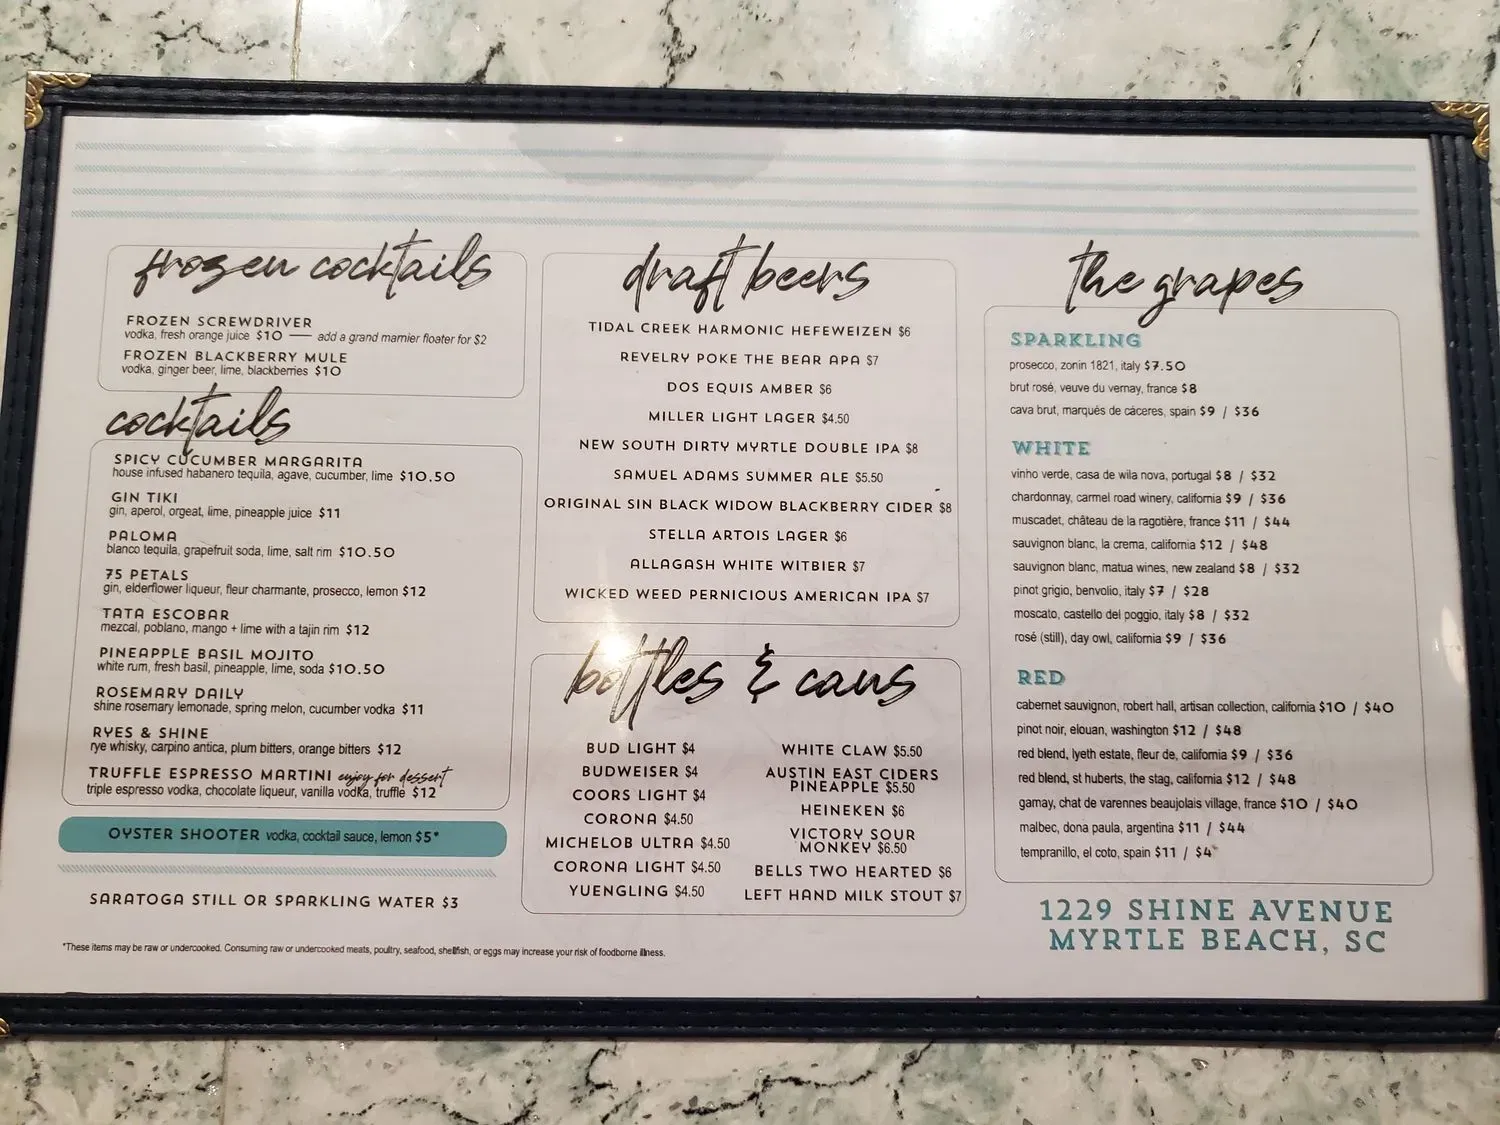 frozen cocktails
FROZEN SCREWDRIVER
vodka, fresh orange juice $10 — add a grand marnier floater for $2
FROZEN BLACKBERRY MULE
vodka, ginger beer, lime, blackberries $10
cocktails
SPICY CUCUMBER MARGARITA
house infused habanero tequila, agave, cucumber, lime $10.50
GIN TIKI
gin, aperol, orgeat, lime, pineapple juice $11
PALOMA
blanco tequila, grapefruit soda, lime, salt rim $10.50
75 PETALS
gin, elderflower liqueur, fleur charmante, prosecco, lemon $12
TATA ESCOBAR
mezcal, poblano, mango + lime with a tajin rim $12
PINEAPPLE BASIL MOJITO
white rum, fresh basil, pineapple, lime, soda $10.50
ROSEMARY DAILY
shine rosemary lemonade, spring melon, cucumber vodka $11
RYES & SHINE
rye whisky, carpino antica, plum bitters, orange bitters $12
TRUFFLE ESPRESSO MARTINI enjoy for dessert
triple espresso vodka, chocolate liqueur, vanilla vodka, truffle $12
OYSTER SHOOTER vodka, cocktail sauce, lemon $5*
SARATOGA STILL OR SPARKLING WATER $3
*These items may be raw or undercooked. Consuming raw or undercooked meats, poultry, seafood, shellfish, or eggs may increase your risk of foodborne illness.
draft beers
TIDAL CREEK HARMONIC HEFEWEIZEN $6
REVELRY POKE THE BEAR APA $7
DOS EQUIS AMBER $6
MILLER LIGHT LAGER $4.50
NEW SOUTH DIRTY MYRTLE DOUBLE IPA $8
SAMUEL ADAMS SUMMER ALE $5.50
ORIGINAL SIN BLACK WIDOW BLACKBERRY CIDER $8
STELLA ARTOIS LAGER $6
ALLAGASH WHITE WITBIER $7
WICKED WEED PERNICIOUS AMERICAN IPA $7
bottles & cans
BUD LIGHT $4
BUDWEISER $4
COORS LIGHT $4
CORONA $4.50
MICHELOB ULTRA $4.50
CORONA LIGHT $4.50
YUENGLING $4.50
WHITE CLAW $5.50
AUSTIN EAST CIDERS
PINEAPPLE $5.50
HEINEKEN $6
VICTORY SOUR
MONKEY $6.50
BELLS TWO HEARTED $6
LEFT HAND MILK STOUT $7
the grapes
SPARKLING
prosecco, zonin 1821, italy $7.50
brut rosé, veuve du vernay, france $8
cava brut, marqués de cáceres, spain $9 / $36
WHITE
vinho verde, casa de wila nova, portugal $8 / $32
chardonnay, carmel road winery, california $9 / $36
muscadet, château de la ragotière, france $11 / $44
sauvignon blanc, la crema, california $12 / $48
sauvignon blanc, matua wines, new zealand $8 / $32
pinot grigio, benvolio, italy $7 / $28
moscato, castello del poggio, italy $8 / $32
rosé (still), day owl, california $9 / $36
RED
cabernet sauvignon, robert hall, artisan collection, california $10 / $40
pinot noir, elouan, washington $12 / $48
red blend, lyeth estate, fleur de, california $9 / $36
red blend, st huberts, the stag, california $12 / $48
gamay, chat de varennes beaujolais village, france $10 / $40
malbec, dona paula, argentina $11 / $44
tempranillo, el coto, spain $11 /
1229 SHINE AVENUE
MYRTLE BEACH, SC